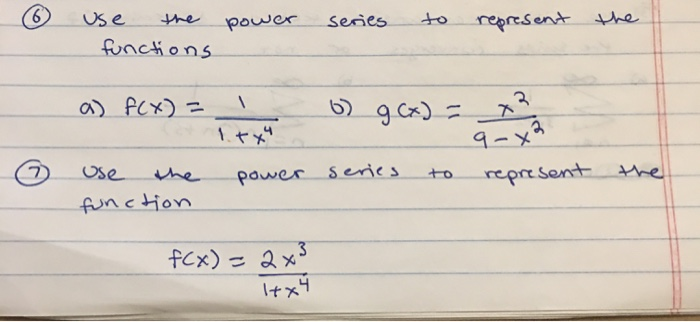 ⑥ Use the power series to represent the
functions
a) f(x) = 1 / (1 + x⁴) b) g(x) = x² / (9 - x²)
⑦ Use the power series to represent the
function
f(x) = 2x³ / (1+x⁴)